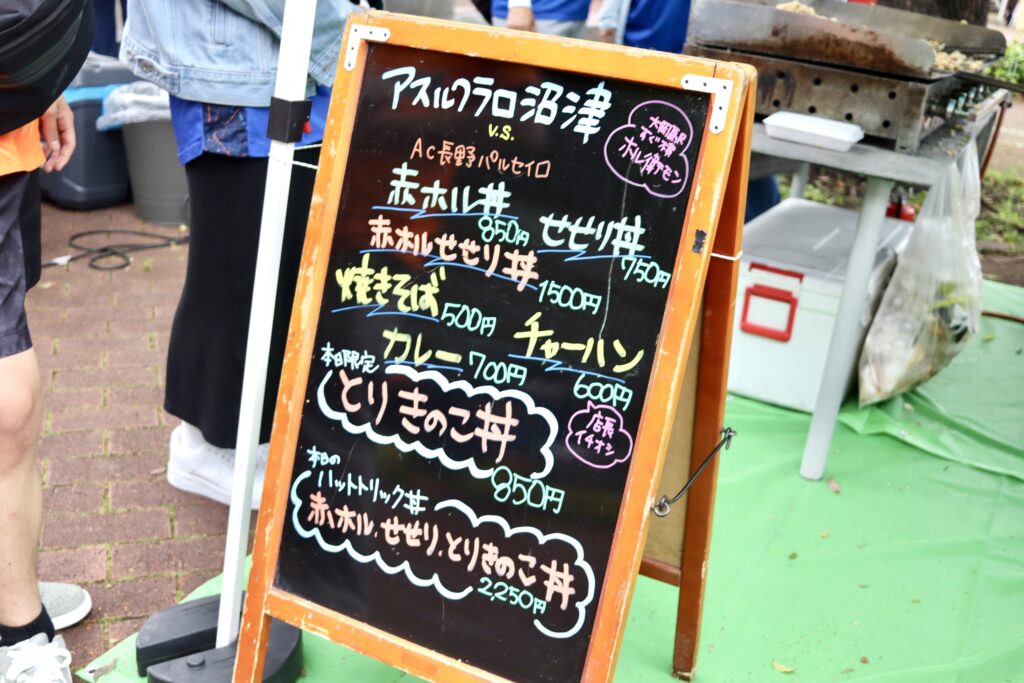 アスルクラロ沼津
v.s.
AC長野パルセイロ
大岡駅
すぐ横
ホル衛モン
赤ホル丼
850円
せせり丼
750円
赤ホルせせり丼
1500円
焼きそば
500円
チャーハン
600円
カレー
700円
本日限定
とりきのこ丼
850円
店長
イチオシ
本日の
ハットトリック丼
赤ホル、せせり、とりきのこ丼
2,250円